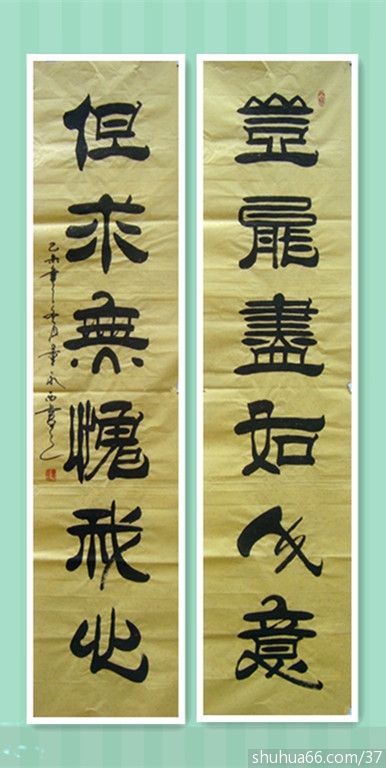 豈能盡如人意
但求無愧我心
shuhua66.com/37